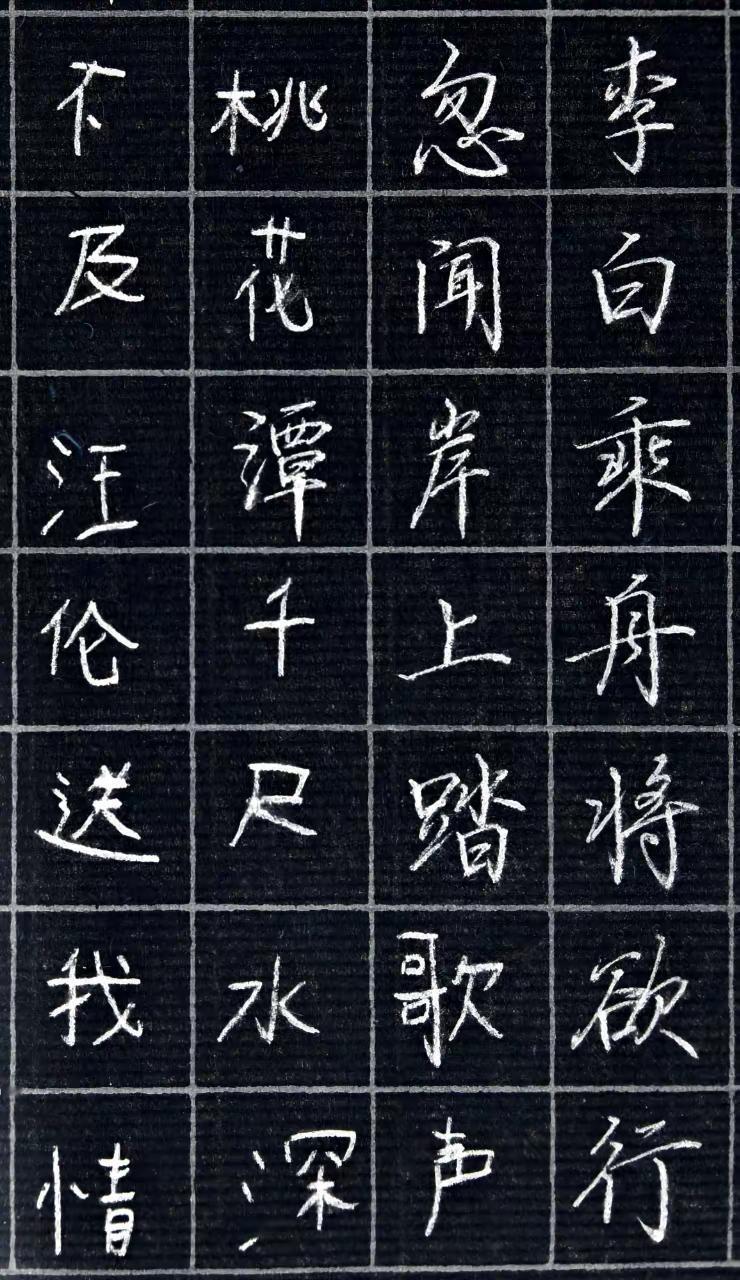 李白乘舟将欲行
忽闻岸上踏歌声
桃花潭千尺水深
不及汪伦送我情